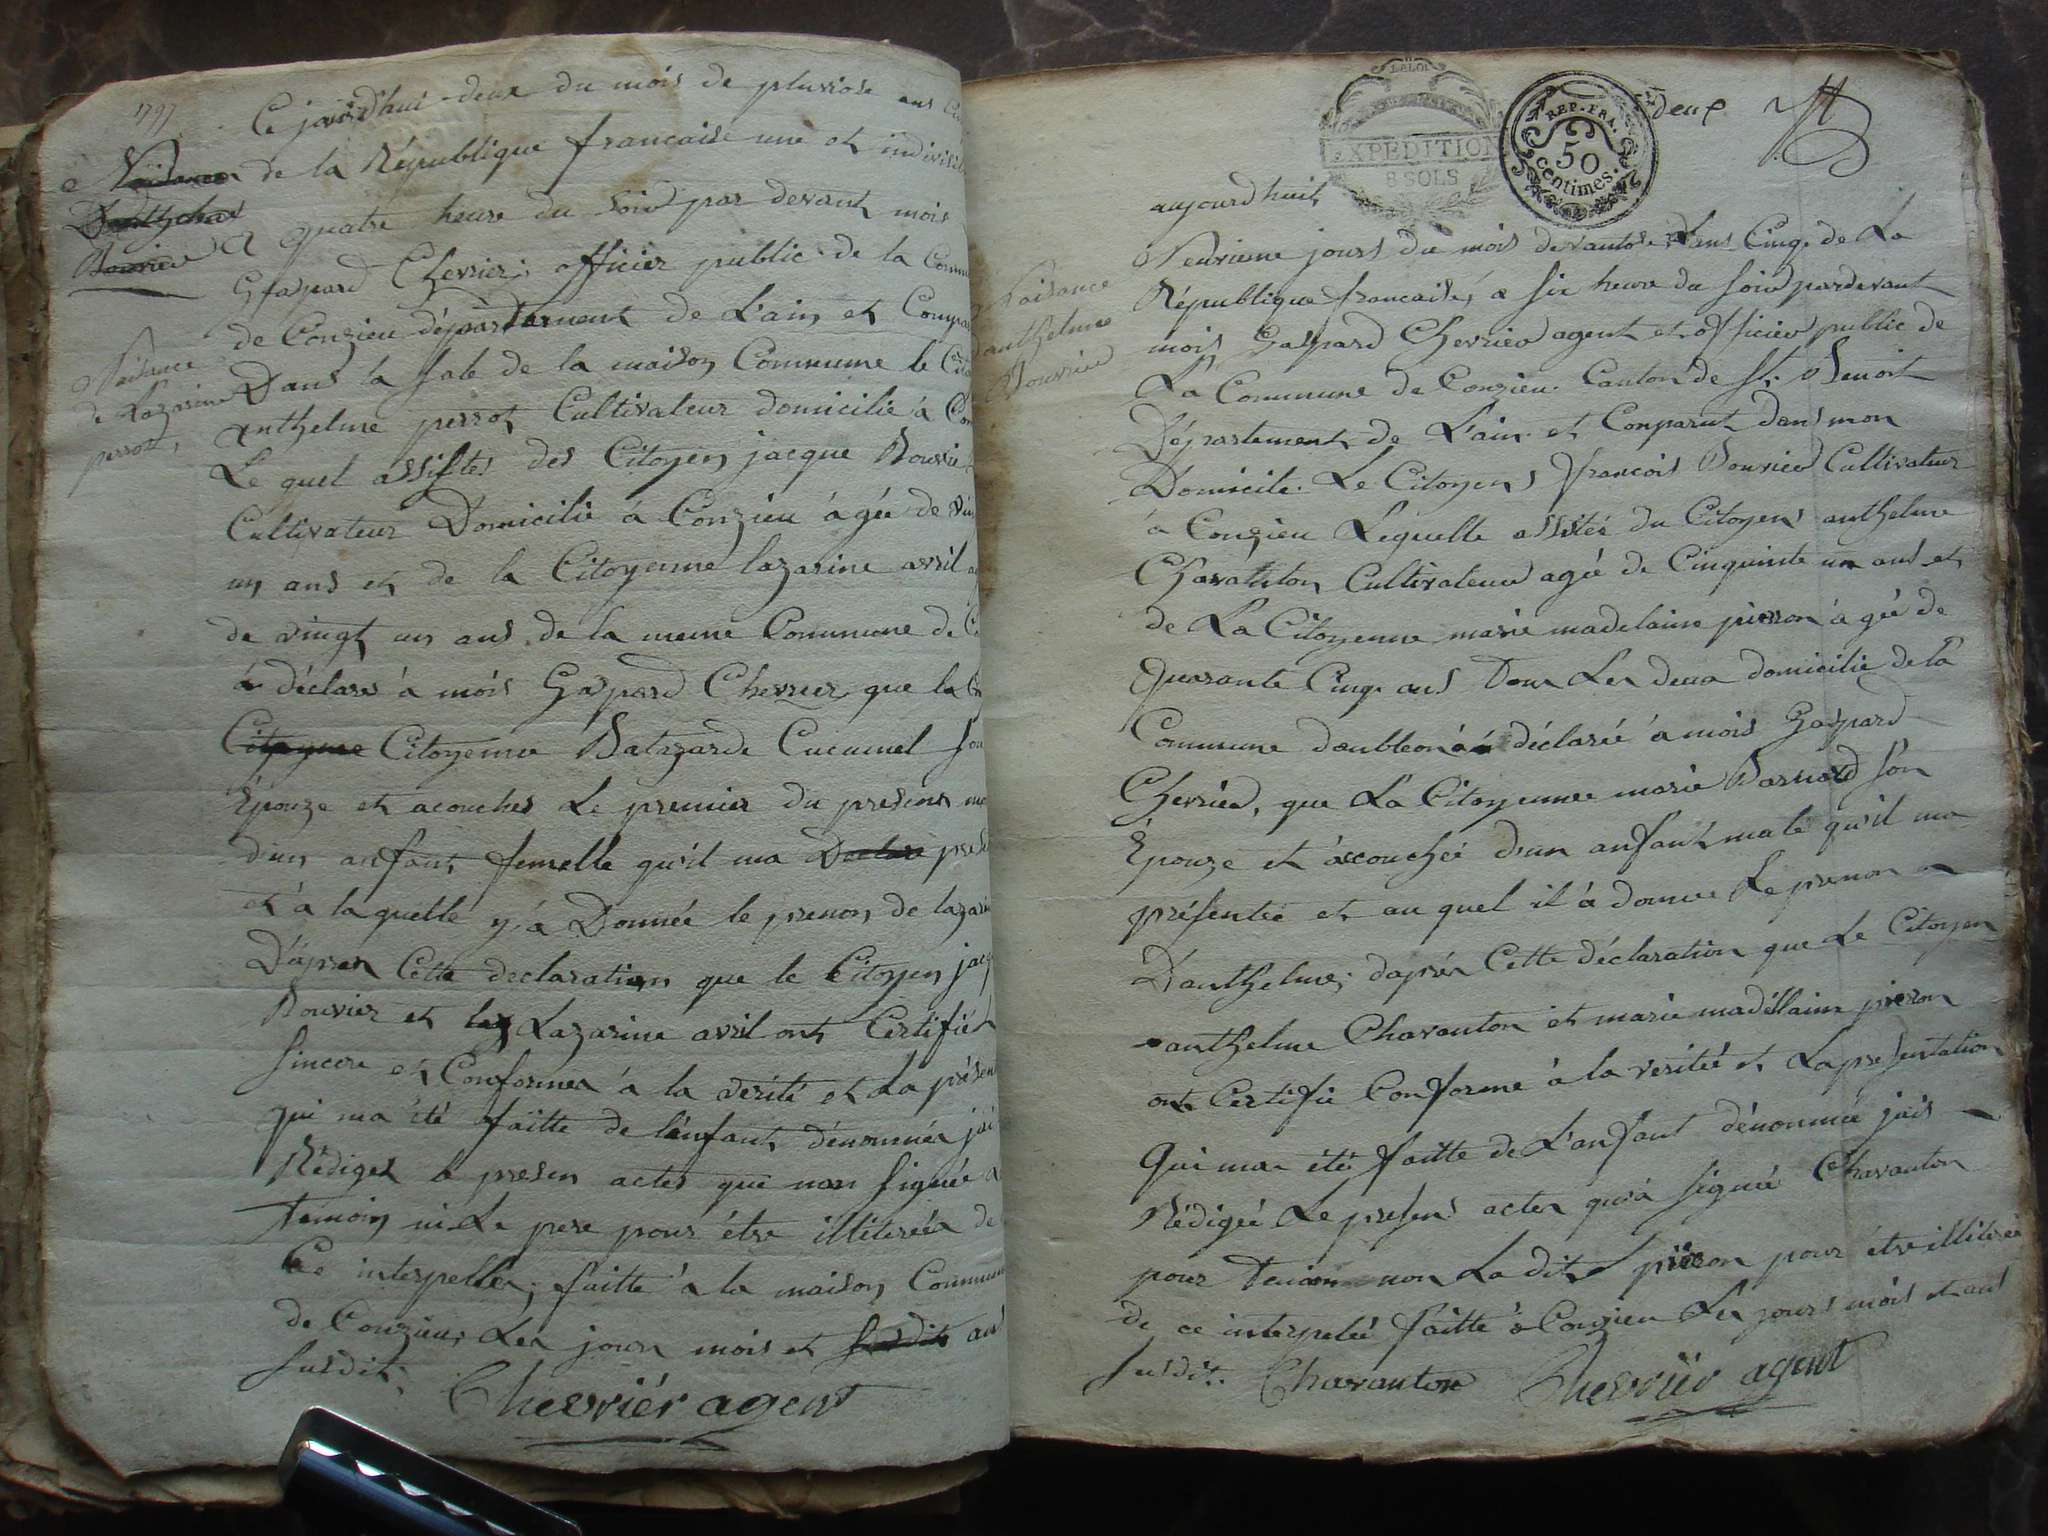 1797
Ce jourd'hui deux du mois de pluviose ans
de la République francaise une et indivisi
a quatre heure du soir par devant mois
Gaspard Chevrier officier public de la Comm
de Conzieu département de L'ain et Compa
Naisance
de Lazarine
perrot,
Dans la sale de la maison Commune le Cito
anthelme perrot Cultivateur domicilié à Con
Le quel assistes des Citoyen jacque Bouvier
Cultivateur Domicilié à Conzieu àgée de vin
un ans et de la Citoyenne lazarine avril
de vingt un ans de la meme Commune de C
à déclare à mois Gaspard Chevrier que la
Citoyenne Balazarde Cucumel son
Épouze et acouches Le premier du presens mo
d'un anfant femelle qu'il ma Declare prese
et à laquelle y'à Donnée le prenon de lazari
D'àpres Cette declaration que le Citoyen jacq
Bouvier et Lazarine avril ont Certifiés
sincere et Conformes à la vérité et La présen
qui ma été faitte de l'enfant dénommés jai
Rédiges le presen actes que non signée
temoin ni Le pere pour être illiterées de
Ce interpelles, faitte à la maison Commune
de Conzieu, Les jours mois et susdit ans
susdit.
Chevriér agent
LA LOI
EXPEDITION
8 SOLS
REP. FRA.
50
centimes.
deux
aujourdhuit
Naisance
anthelme
Bouvier
Neuvieme jours du mois de vantose L'ans Cinq de La
République francaise, a six heure du soir pardevant
mois Gaspard Chevrier agent et officier public de
La Commune de Conzieu Canton de St. Benoit
Département de L'ain et Conparut dans mon
Domicile Le Citoyens francois Bouvier Cultivateur
à Conzieu Lequelle assités du Citoyens anthelme
Chavanton Cultivateur agée de Cinquante un ans et
de La Citoyenne marie madelaine pierron àgée de
Quarante Cinq ans Tous Les deux domicilié de la
Commune à déclarée à mois Gaspard
Chevrier, que La Citoyenne marie Barnard son
Épouze et àcouchée d'un anfant male qu'il ma
présentée et au quel il à donnee Le prenon
D'anthelme, daprés Cette déclaration que Le Citoyen
anthelme Chavanton et marie madéllaine pierron
ont Certifié Conforme à la veritée et La presentation
Qui ma été faitte de L'anfant dénommée jais
Rédigée Le presens actes qu'à signée Chavanton
pour temoin non La dite pierron pour être illiterée
de ce interpelée faitte à Conzieu Les jours mois et ans
susdit. Chavanton Chevriér agent